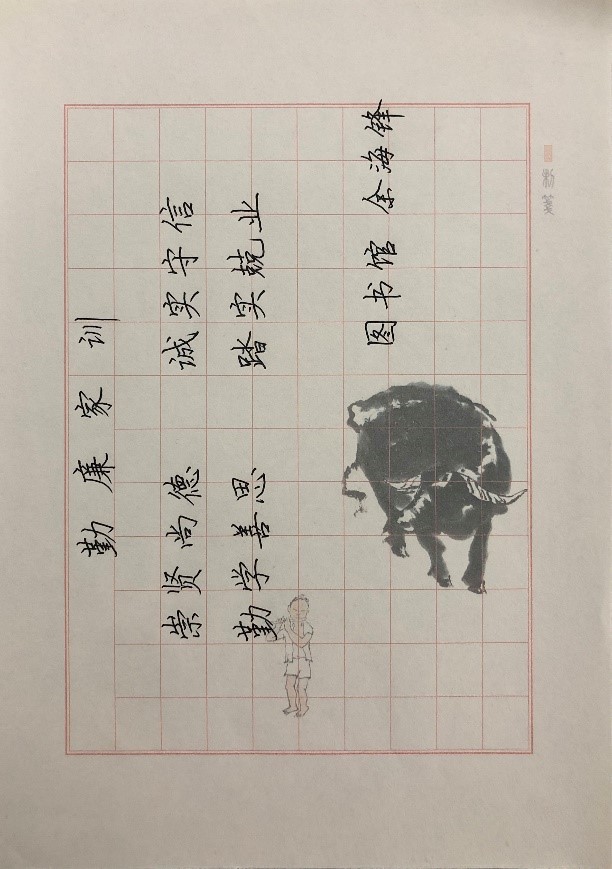 勤廉家训
崇贤尚德 诚实守信
勤学善思 踏实兢业
图书馆 余海锋